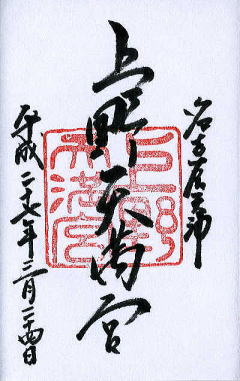 名古屋
上野天満宮
平成二十七年三月二十四日
上野
天満宮